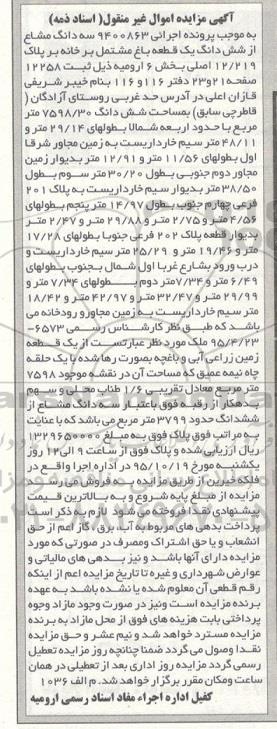 آگهی مزایده اموال غیر منقول( اسناد ذمه)
به موجب پرونده اجرائی ۹۴۰۰۸۶۳ سه دانگ مشاع
از شش دانگ یک قطعه باغ مشتمل بر خانه بر پلاک
۱۲/۲۱۹ اصلی بخش ۶ ارومیه ذیل ثبت ۱۲۲۵۸
صفحه۲۱و۲۳ دفتر ۱۱۶و ۱۱۶ بنام خیبر شریفی
قازان اعلی در آدرس حد غربی روستای آزادگان (
قاطرچی سابق) بمساحت شش دانگ ۷۵۹۸/۳۰ متر
مربع با حدود اربعه شمالا بطولهای ۲۹/۱۴ متر و
۴۸/۱۱ متر سیم خارداریست به زمین مجاور شرقا
اول بطولهای ۱۱/۵۶ متر و ۱۲/۹۱ متر بدیوار زمین
مجاور دوم جنوبی بطول ۳۰/۲۰ متر سوم بطول
۳۸/۵۰ متر بدیوار سیم خارداریست به پلاک ۲۰۱
فرعی چهارم جنوب بطول ۱۴/۹۷ متر پنجم بطولهای
۴/۵۶ متر و ۲/۷۵ متر و ۲۹/۸۸ متر و ۲/۴۷ متر
بدیوار قطعه پلاک ۲۰۲ فرعی جنوبا بطولهای ۱۷/۲۸
متر و ۱۹/۴۶ متر و ۲۵/۲۹ متر سیم خارداریست و
درب ورود بشارع غربا اول شمال بجنوب بطولهای
۶/۴۹ متر و ۷/۳۴متر دوم بطولهای ۷/۳۴ متر و
۲۹/۹۹ متر و ۳۲/۴۷ متر و ۴۲/۹۷ متر و ۱۸/۴۲
متر سیم خارداریست به زمین مجاورو رودخانه می
باشد که طبق نظر کارشناس رسمی ۶۵۷۳-
۹۵/۴/۲۳ ملک مورد نظر عبارتست از یک قطعه
زمین زراعی آبی و باغچه بصورت رها شده با یک حلقه
چاه نیمه عمیق که مساحت آن در نقشه موجود ۷۵۹۸
متر مربع معادل تقریبی ۱/۶ طناب محلی و سهم
بدهکار از رقبه فوق باعتبار سه دانگ مشاع از
ششدانگ حدود ۳۷۹۹ متر مربع می باشد که با عنایت
به مراتب فوق پلاک فوق به مبلغ ۱۳۲۹۶۵۰۰۰۰
ریال ارزیابی شده و پلاک فوق از ساعت ۹ الی۱۲ روز
یکشنبه مورخ ۹۵/۱۰/۱۹ در اداره اجرا واقع در
ملکه شیرین از طریق مزایده به فروش می رسد
مزایده از مبلغ پایه شروع و به بالاترین قیمت
پیشنهادی نقدا فروخته می شود لازم به ذکر است
پرداخت بدهی های مربوطه به آب، برق، گاز اعم از حق
انشعاب و یا حق اشتراک ومصرف در صورتی که مورد
مزایده دارای آنها باشد و نیز بدهی های مالیاتی و
عوارض شهرداری و غیره تا تاریخ مزایده اعم از اینکه
رقم قطعی آن معلوم شده یا نشده باشد به عهده
برنده مزایده است ونیز در صورت وجود مازاد وجوه
پرداختی بابت هزینه های فوق از محل مازاد به برنده
مزایده مسترد خواهد شد و نیم عشر و حق مزایده
نقدا وصول می گردد ضمنا چنانچه روز مزایده تعطیل
رسمی گردد مزایده روز اداری بعد از تعطیلی در همان
ساعت ومکان مقرر برگزار خواهد شد. م الف ۱۰۳۶
کفیل اداره اجراء مفاد اسناد رسمی ارومیه